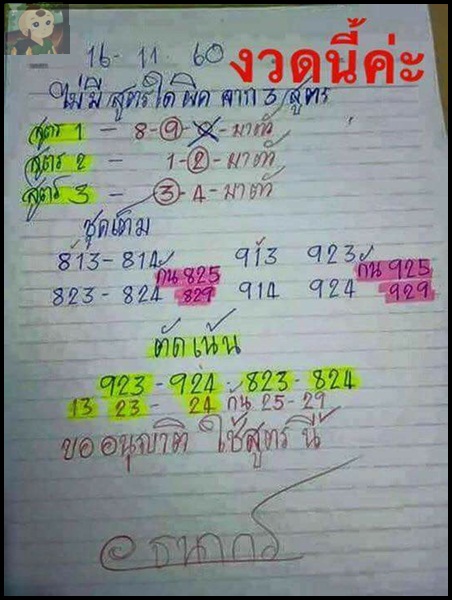 16 - 11. 60 งวดนี้ค่ะ
ไม่มี สูตรใด ผิด จาก 3 สูตร
สูตร 1 - 8-9- - มาตัว
สูตร 2 - 1-2- มาตัว
สูตร 3 - 3-4- มาตัว
ชุดเต็ม
813-814 กัน 825 913 923 กัน 925
823-824 829 914 924 929
ตัดเน้น
923-924-823-824
13 23 - 24 กัน 25-29
ขออนุญาติ ใช้สูตรนี้
ธนากร